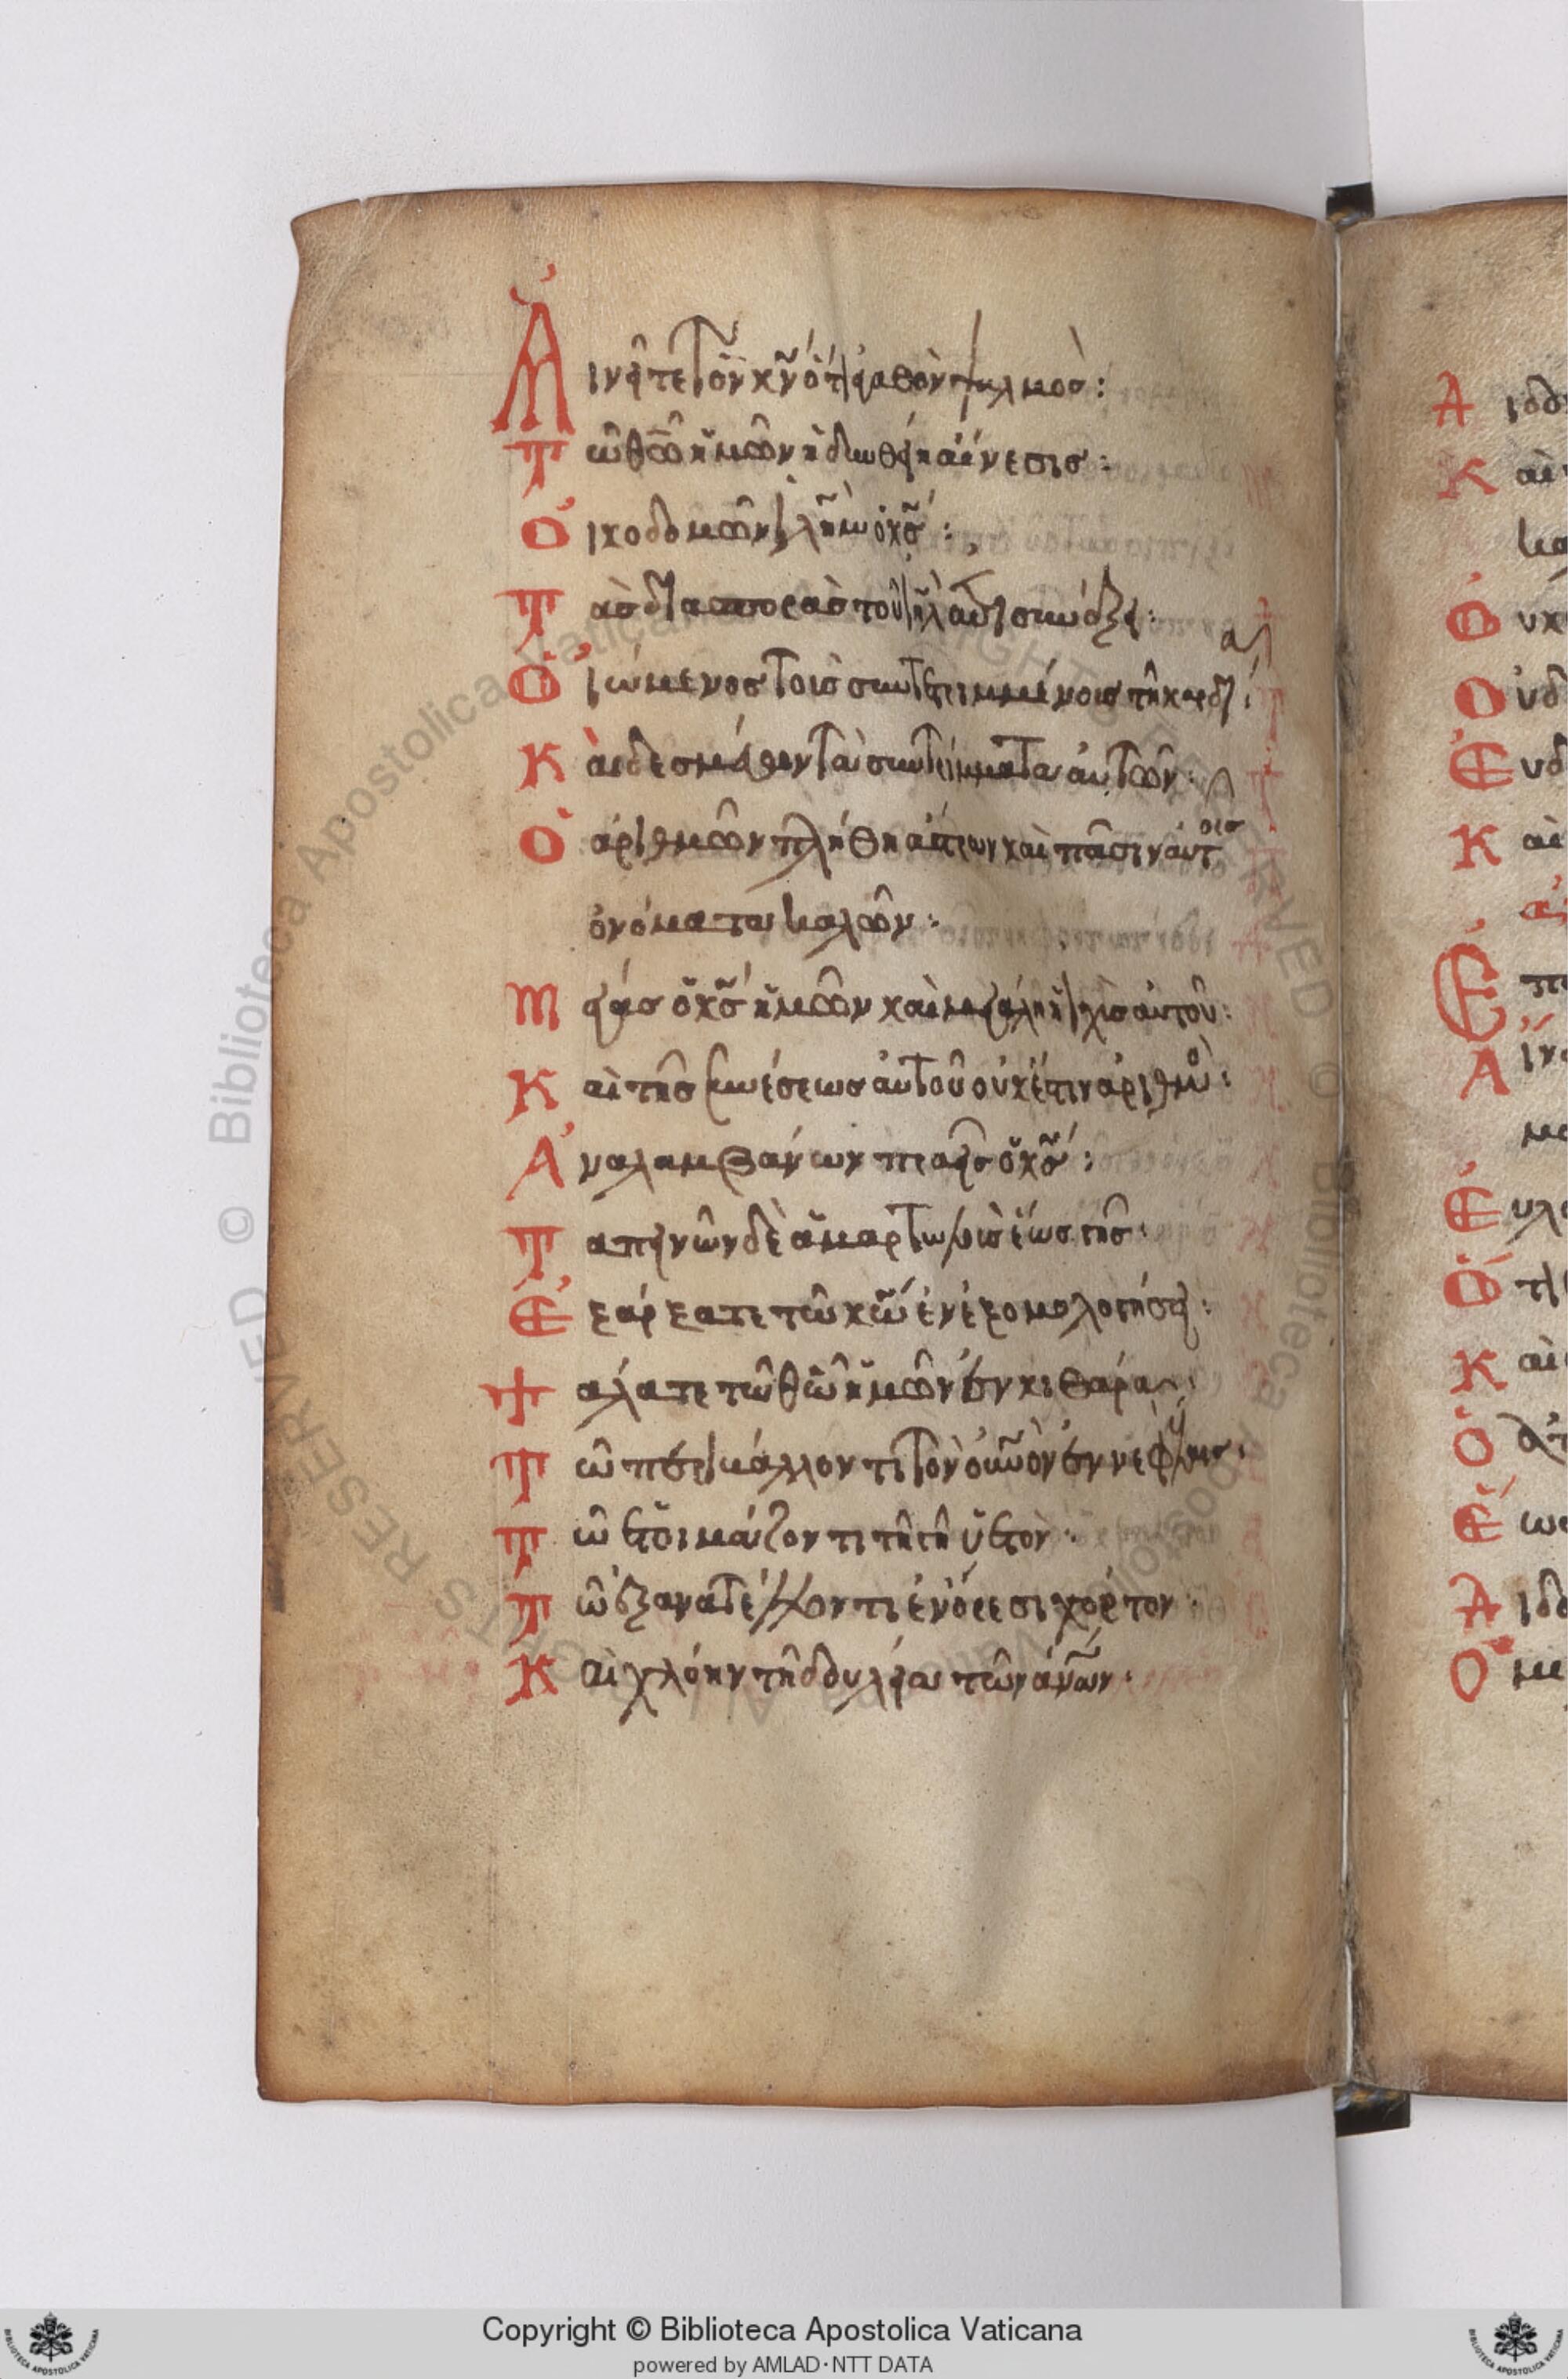 Αἰνεῖτε τὸν κν̄ ὅτι ἀγαθὸν ψαλμὸσ:
Τῶ θῶ ἡμῶν ἡδυνθείη αἴνεσισ:
Ὀικοδομῶν ιλη̄μ ὁ κσ̄:
Τὰσ διασπορὰσ τοῦ ιηλ̄ ἐπισυνάξει:
Ὁ ἰώμενοσ τοὺσ συντετριμμένουσ τὴν καρδίαν
Κὰι δεσμεύων τὰ συντρίμματα αὐτῶν:
Ὁ ἀριθμῶν πλήθη ἄστρων καὶ πᾶσιν αὐτοῖσ
ὀνόματα καλῶν:
Μέγασ ὁ κσ̄ ἡμῶν καὶ μεγάλη ἡ ἰσχὺσ αὐτοῦ:
Κὰι τῆσ συνέσεωσ αὐτοῦ οὐκ ἔστιν ἀριθμὸσ:
Ἀναλαμβάνων πραεῖσ ὁ κσ̄:
Ταπεινῶν δὲ ἁμαρτωλοὺσ ἕωσ γῆσ:
Ἐξάρξατε τῶ κω̄ ἐν ἐξομολογήσει:
Ψάλατε τῶ θω̄ ἡμῶν ἐν κιθάρα:
Τῶ περιβάλλοντι τὸν οὐνὸν ἐν νεφέλαισ:
Τῶ ἑτοιμάζοντι τῆ γῆ ὑετὸν:
Τῶ ἐξανατέλλοντι ἐν ὄρεσι χόρτον:
Κὰι χλόην τῆ δουλεία τῶν ἀνων̄:
Copyright © Biblioteca Apostolica Vaticana
powered by AMLAD·NTT DATA